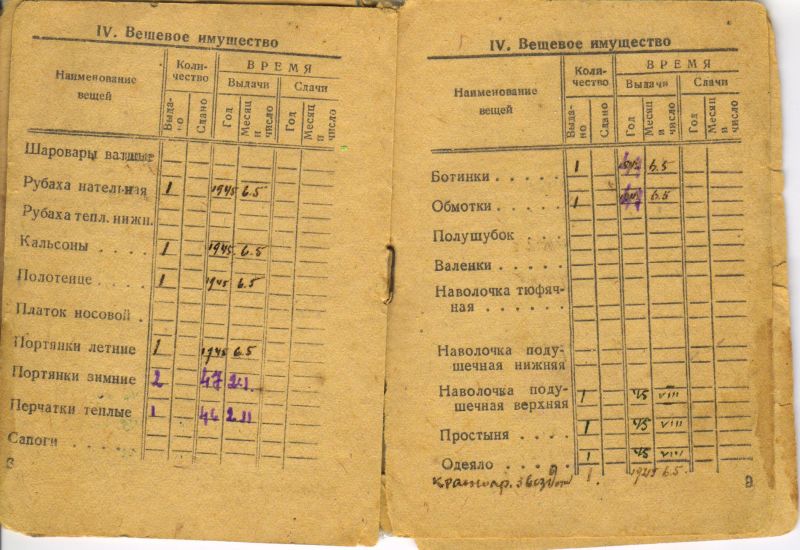 IV. Вещевое имущество
Наименование вещей
Коли-чество
ВРЕМЯ
Выдачи
Сдачи
Выда-но
Сдано
Год
Месяц и число
Год
Месяц и число
Шаровары ватные
Рубаха нательная 1 1945 6.5
Рубаха тепл. нижн.
Кальсоны . . . . 1 1945 6.5
Полотенце . . . . 1 1945 6.5
Платок носовой .
Портянки летние 1 1945 6.5
Портянки зимние 2 47 2.1
Перчатки теплые 1 46 2.11
Сапоги . . . . .
8
IV. Вещевое имущество
Наименование вещей
Коли-чество
ВРЕМЯ
Выдачи
Сдачи
Выда-но
Сдано
Год
Месяц и число
Год
Месяц и число
Ботинки . . . . . 1 47 6.5
Обмотки . . . . . 1 47 6.5
Полушубок . . .
Валенки . . . . .
Наволочка тюфяч-
ная . . . . .
Наволочка поду-
шечная нижняя
Наволочка поду-
шечная верхняя 1 45 VIII
Простыня . . . . 1 45 VIII
Одеяло . . . . 1 45 VIII
красноар. 1 1945 6.5
9